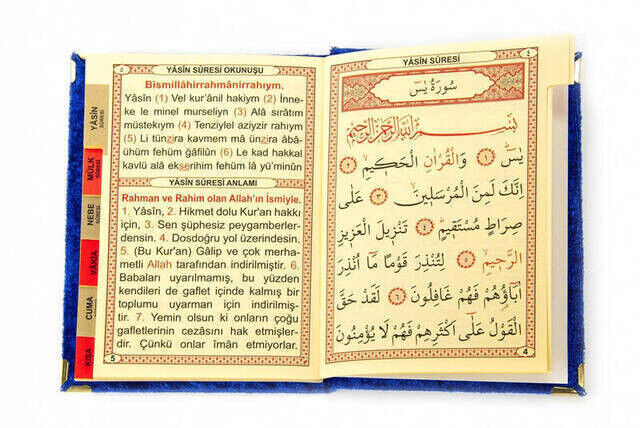 YÂSİN SÛRESİ OKUNUŞU
Bismillâhirrahmânirrahıym.
Yâsîn (1) Vel kur'ânil hakiym (2) İnne-
ke le minel murseliyn (3) Alâ sıratım
müstekıym (4) Tenziylel aziyzir rahıym
(5) Li tünzira kavmem mâ ünzira âbâ-
ühüm fehüm ğâfilûn (6) Le kad hakkal
kavlü alâ ekserihim fehüm lâ yü'minûn
YÂSİN SÛRESİ ANLAMI
Rahman ve Rahim olan Allah'ın İsmiyle.
1. Yâsîn, 2. Hikmet dolu Kur'an hakkı
için, 3. Sen şüphesiz peygamberler-
densin. 4. Dosdoğru yol üzerindesin.
5. (Bu Kur'an) Gâlip ve çok merha-
metli Allah tarafından indirilmiştir. 6.
Babaları uyarılmamış, bu yüzden
kendileri de gaflet içinde kalmış bir
toplumu uyarman için indirilmiş-
tir. 7. Yemin olsun ki onların çoğu
gafletlerinin cezasını hak etmişler-
dir. Çünkü onlar îmân etmiyorlar.
5
YÂSİN SÛRESİ
MÜLK SÛRESİ
NEBE SÛRESİ
VÂKIA
CUMA
KISA
YÂSİN SÛRESİ
٤
سُورَةُ يٰسٓ
بِسْمِ اللّٰهِ الرَّحْمٰنِ الرَّحِيمِ
يٰسٓ ۚ ﴿١﴾ وَالْقُرْاٰنِ الْحَكِيمِۙ ﴿٢﴾
اِنَّكَ لَمِنَ الْمُرْسَلِينَۙ ﴿٣﴾ عَلٰى
صِرَاطٍ مُسْتَقِيمٍۜ ﴿٤﴾ تَنْزِيلَ الْعَزِيزِ
الرَّحِيمِۙ ﴿٥﴾ لِتُنْذِرَ قَوْمًا مَٓا اُنْذِرَ
اٰبَٓاؤُ۬هُمْ فَهُمْ غَافِلُونَ ﴿٦﴾ لَقَدْ حَقَّ
الْقَوْلُ عَلٰٓى اَكْثَرِهِمْ فَهُمْ لَا يُؤْمِنُونَ
4